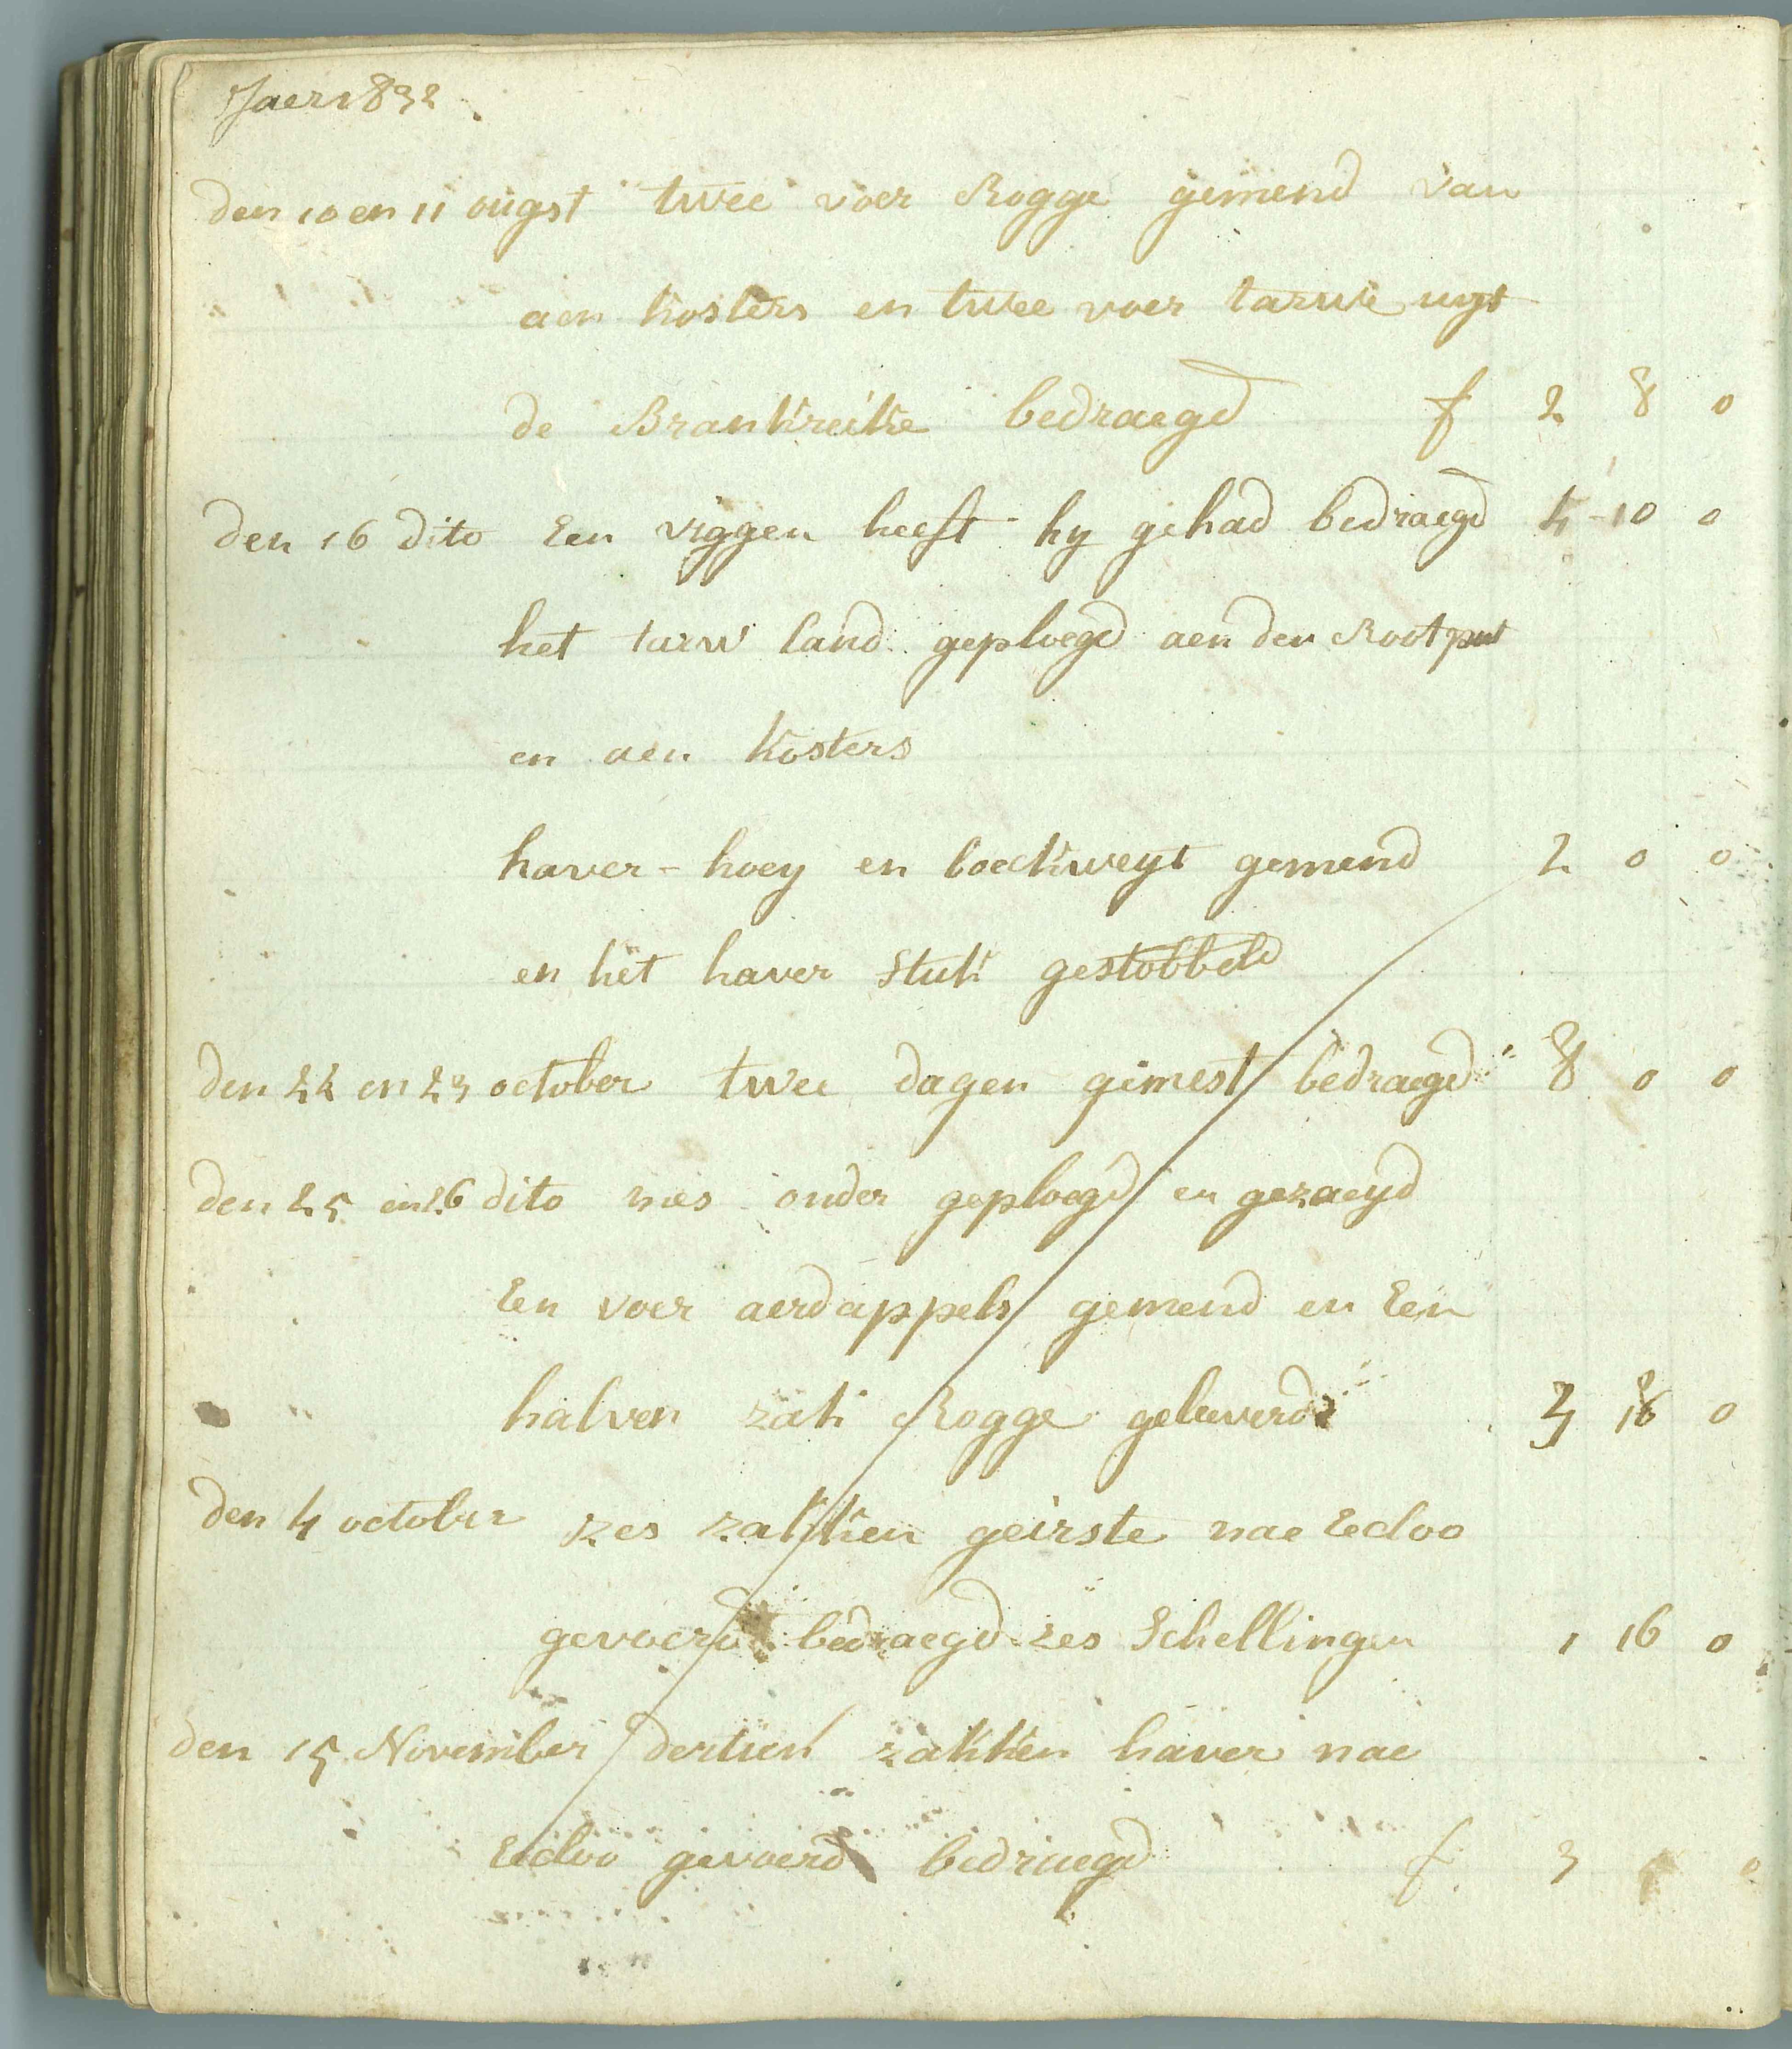 Jaer 1832
den 10 en 11 ougst twee voer Rogge gemend van
aen kosters en twee voer tarwe uyt
de Brankreike bedraegd f 2 8 0
den 16 dito Een viggen heeft hy gehad bedraegd 4-10 0
het tarw land geploegd aen den Rootput
en aen kosters
haver - hoey en boeckweyt gemend 2 0 0
en het haver stuk gestobbeld
den 22 en 23 october twee dagen gemest bedraegd 8 0 0
den 25 en 26 dito mes onder geploegd en gezaeyd
Een voer aerdappels gemend en Een
halven zak Rogge geleeverd 0
den 4 october zes zakken geirste nae Ecloo
gevoerd bedraegd zes Schellingen 1 16 0
den 15 November dertien zakken haver nae
Ecloo gevoerd bedraegd f 3 0